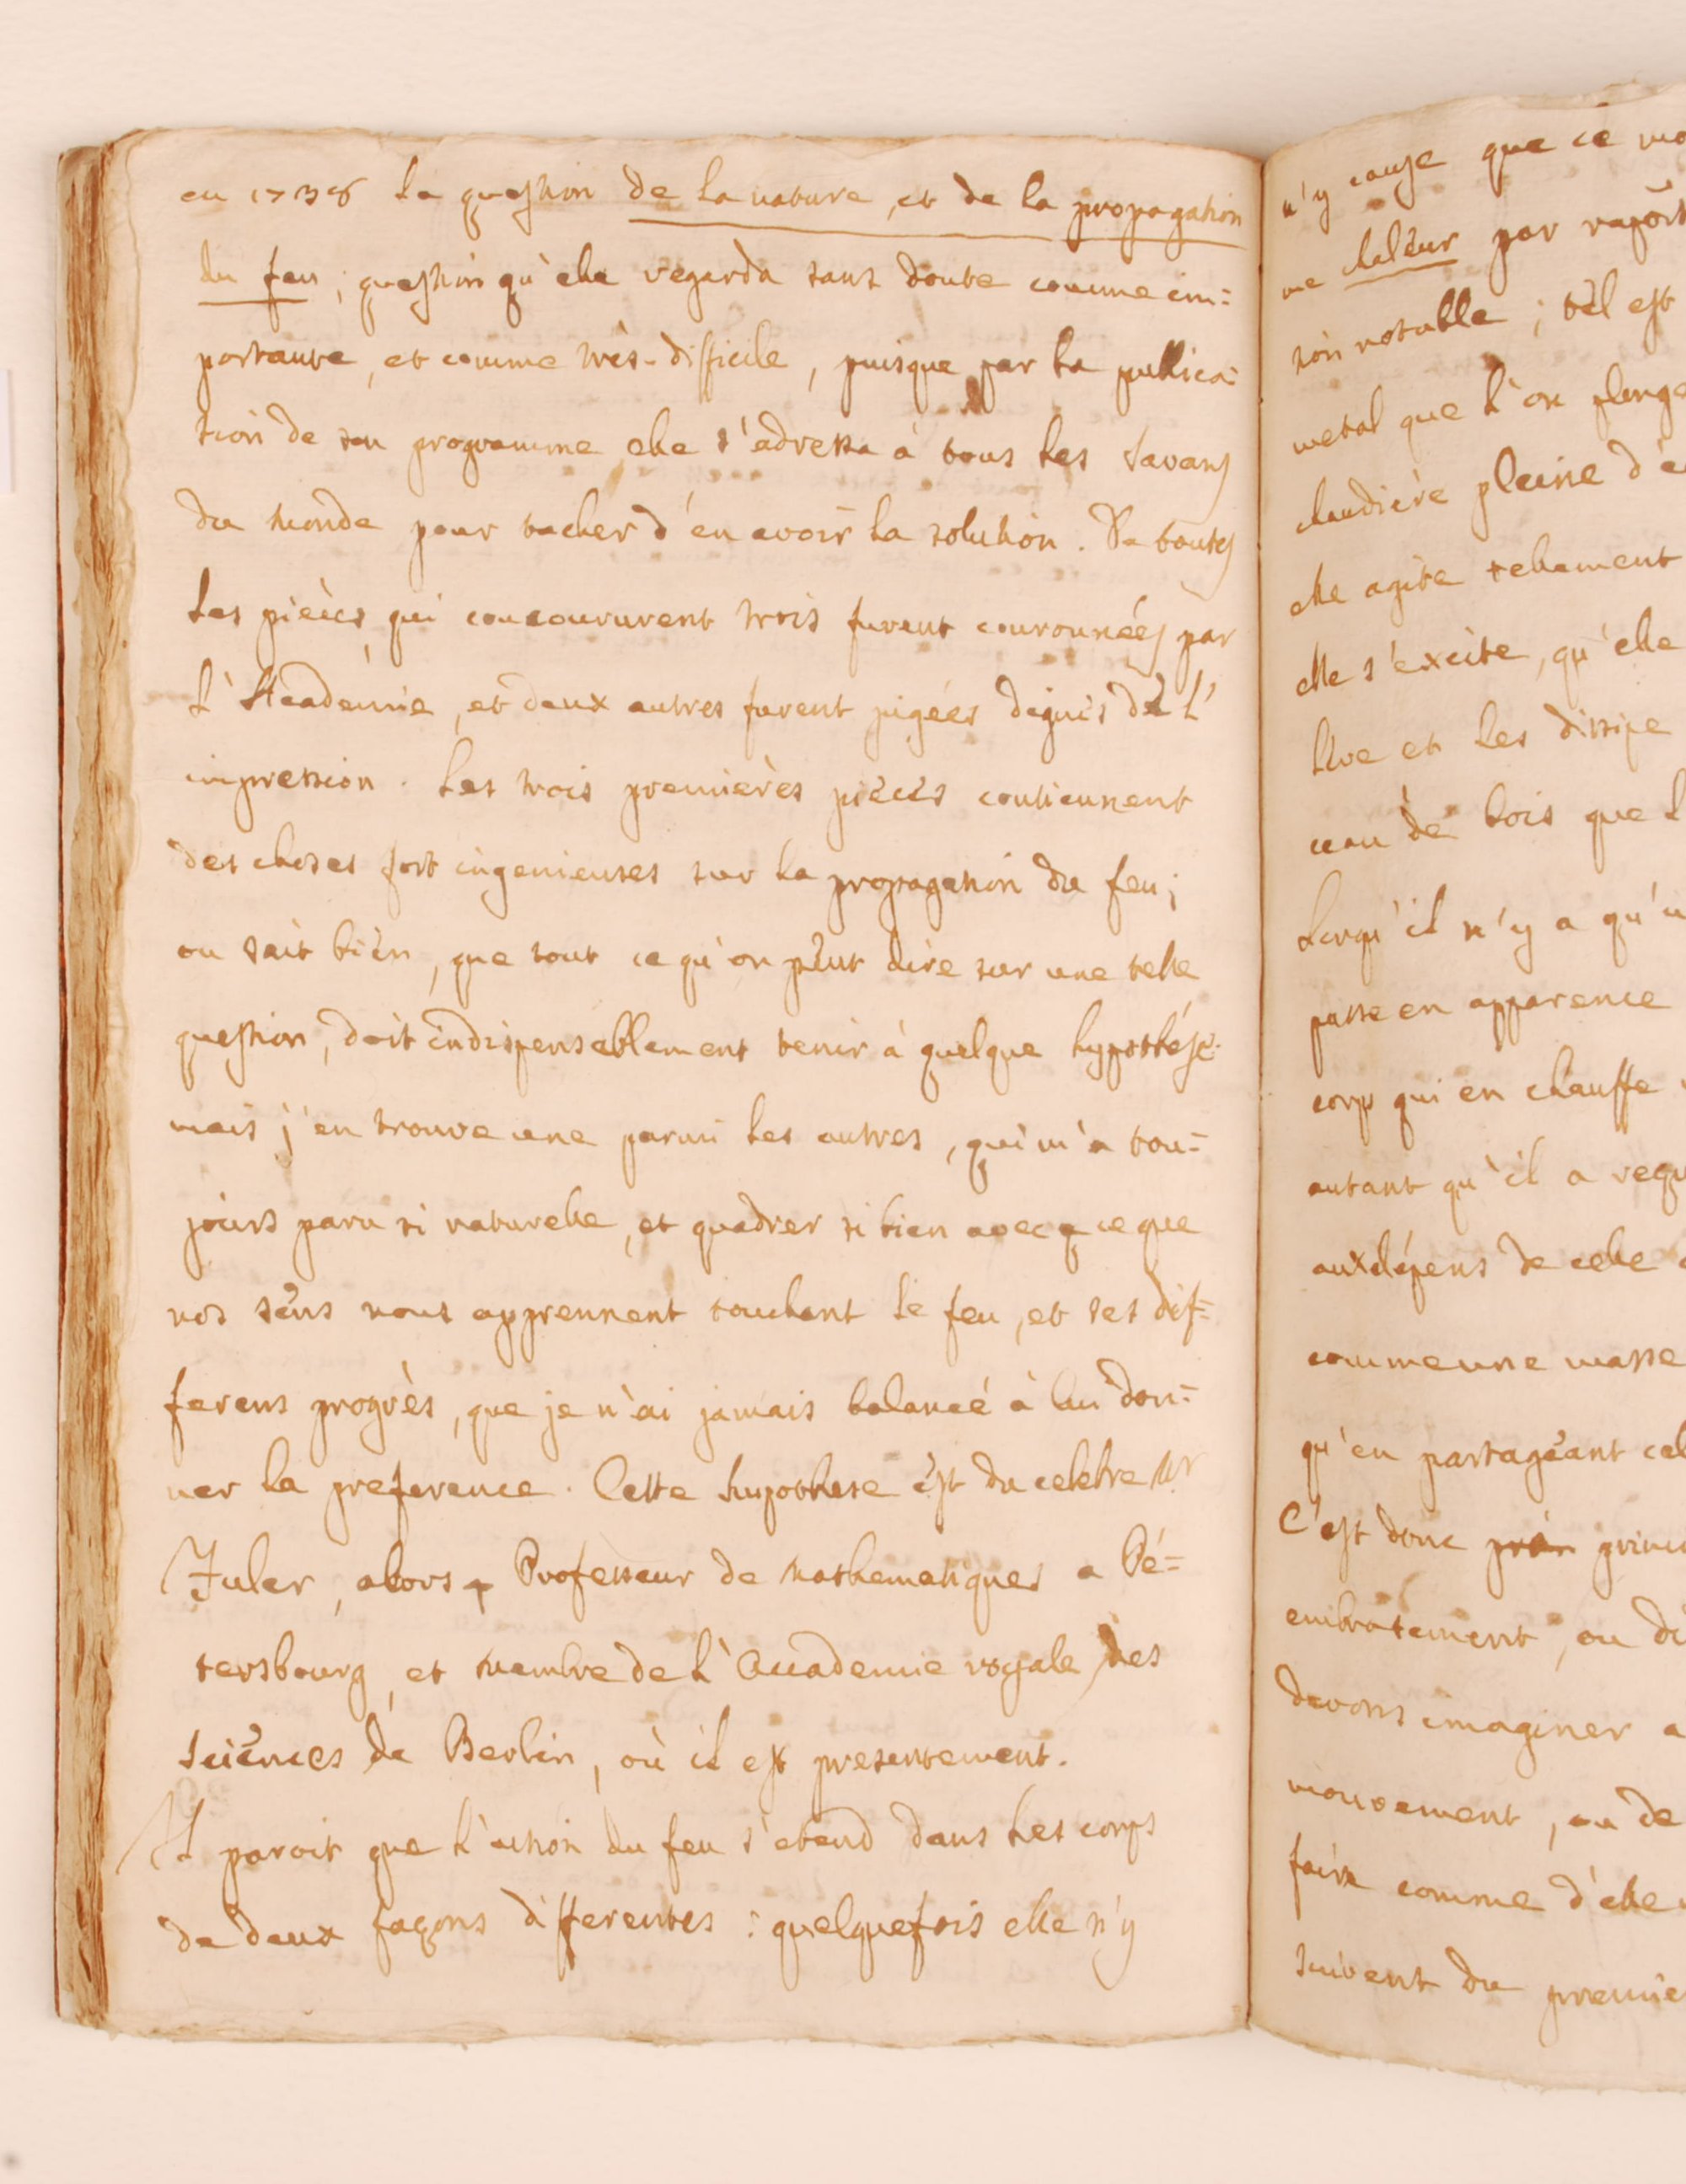 en 1738 la question de la nature, et de la propagation
du feu; question qu'elle regarda sans doute comme im=
portante, et comme très-difficile, puisque par la publica=
tion de son programme elle s'adressa à tous les savans
du monde pour tacher d'en avoir la solution. De toutes
les pièces, qui concoururent trois furent couronnées par
l'Academie, et deux autres furent jugées dignes de l'
impression. Les trois premières pièces contiennent
des choses fort ingenieuses sur la propagation du feu;
on sait bien, que tout ce qu'on peut dire sur une telle
question, doit indispensablement tenir à quelque hypothése
mais j'en trouve une parmi les autres, qui m'a tou=
jours paru si naturelle, et quadrer si bien avec ce que
nos sens nous apprennent touchant le feu, et ses dif=
ferens progrès, que je n'ai jamais balancé à lui don=
ner la preference. Cette hupothese est du celebre Mr
Euler, alors Professeur de Mathematiques a Pé=
tersbourg, et membre de l'Academie royale des
sciences de Berlin, où il est presentement.
Il paroit que l'action du feu s'etend dans les corps
de deux façons differentes: quelquefois elle n'y
n'y cause que ce
ne chaleur par raport
son notable; tel est
metal que l'on plonge
chaudière pleine d'e
elle agite tellement
elle s'excite, qu'elle
live et les dissipe
ceau de bois que l
lorsqu'il n'y a qu'u
passe en apparence
corps qui en chauffe
autant qu'il a reçu
aux dépens de celle
comme une masse
qu'en partageant cel
C'est donc princi
embrasement, ou di
devons imaginer a
mouvement, ou de
faire comme d'elle
suivent du premie